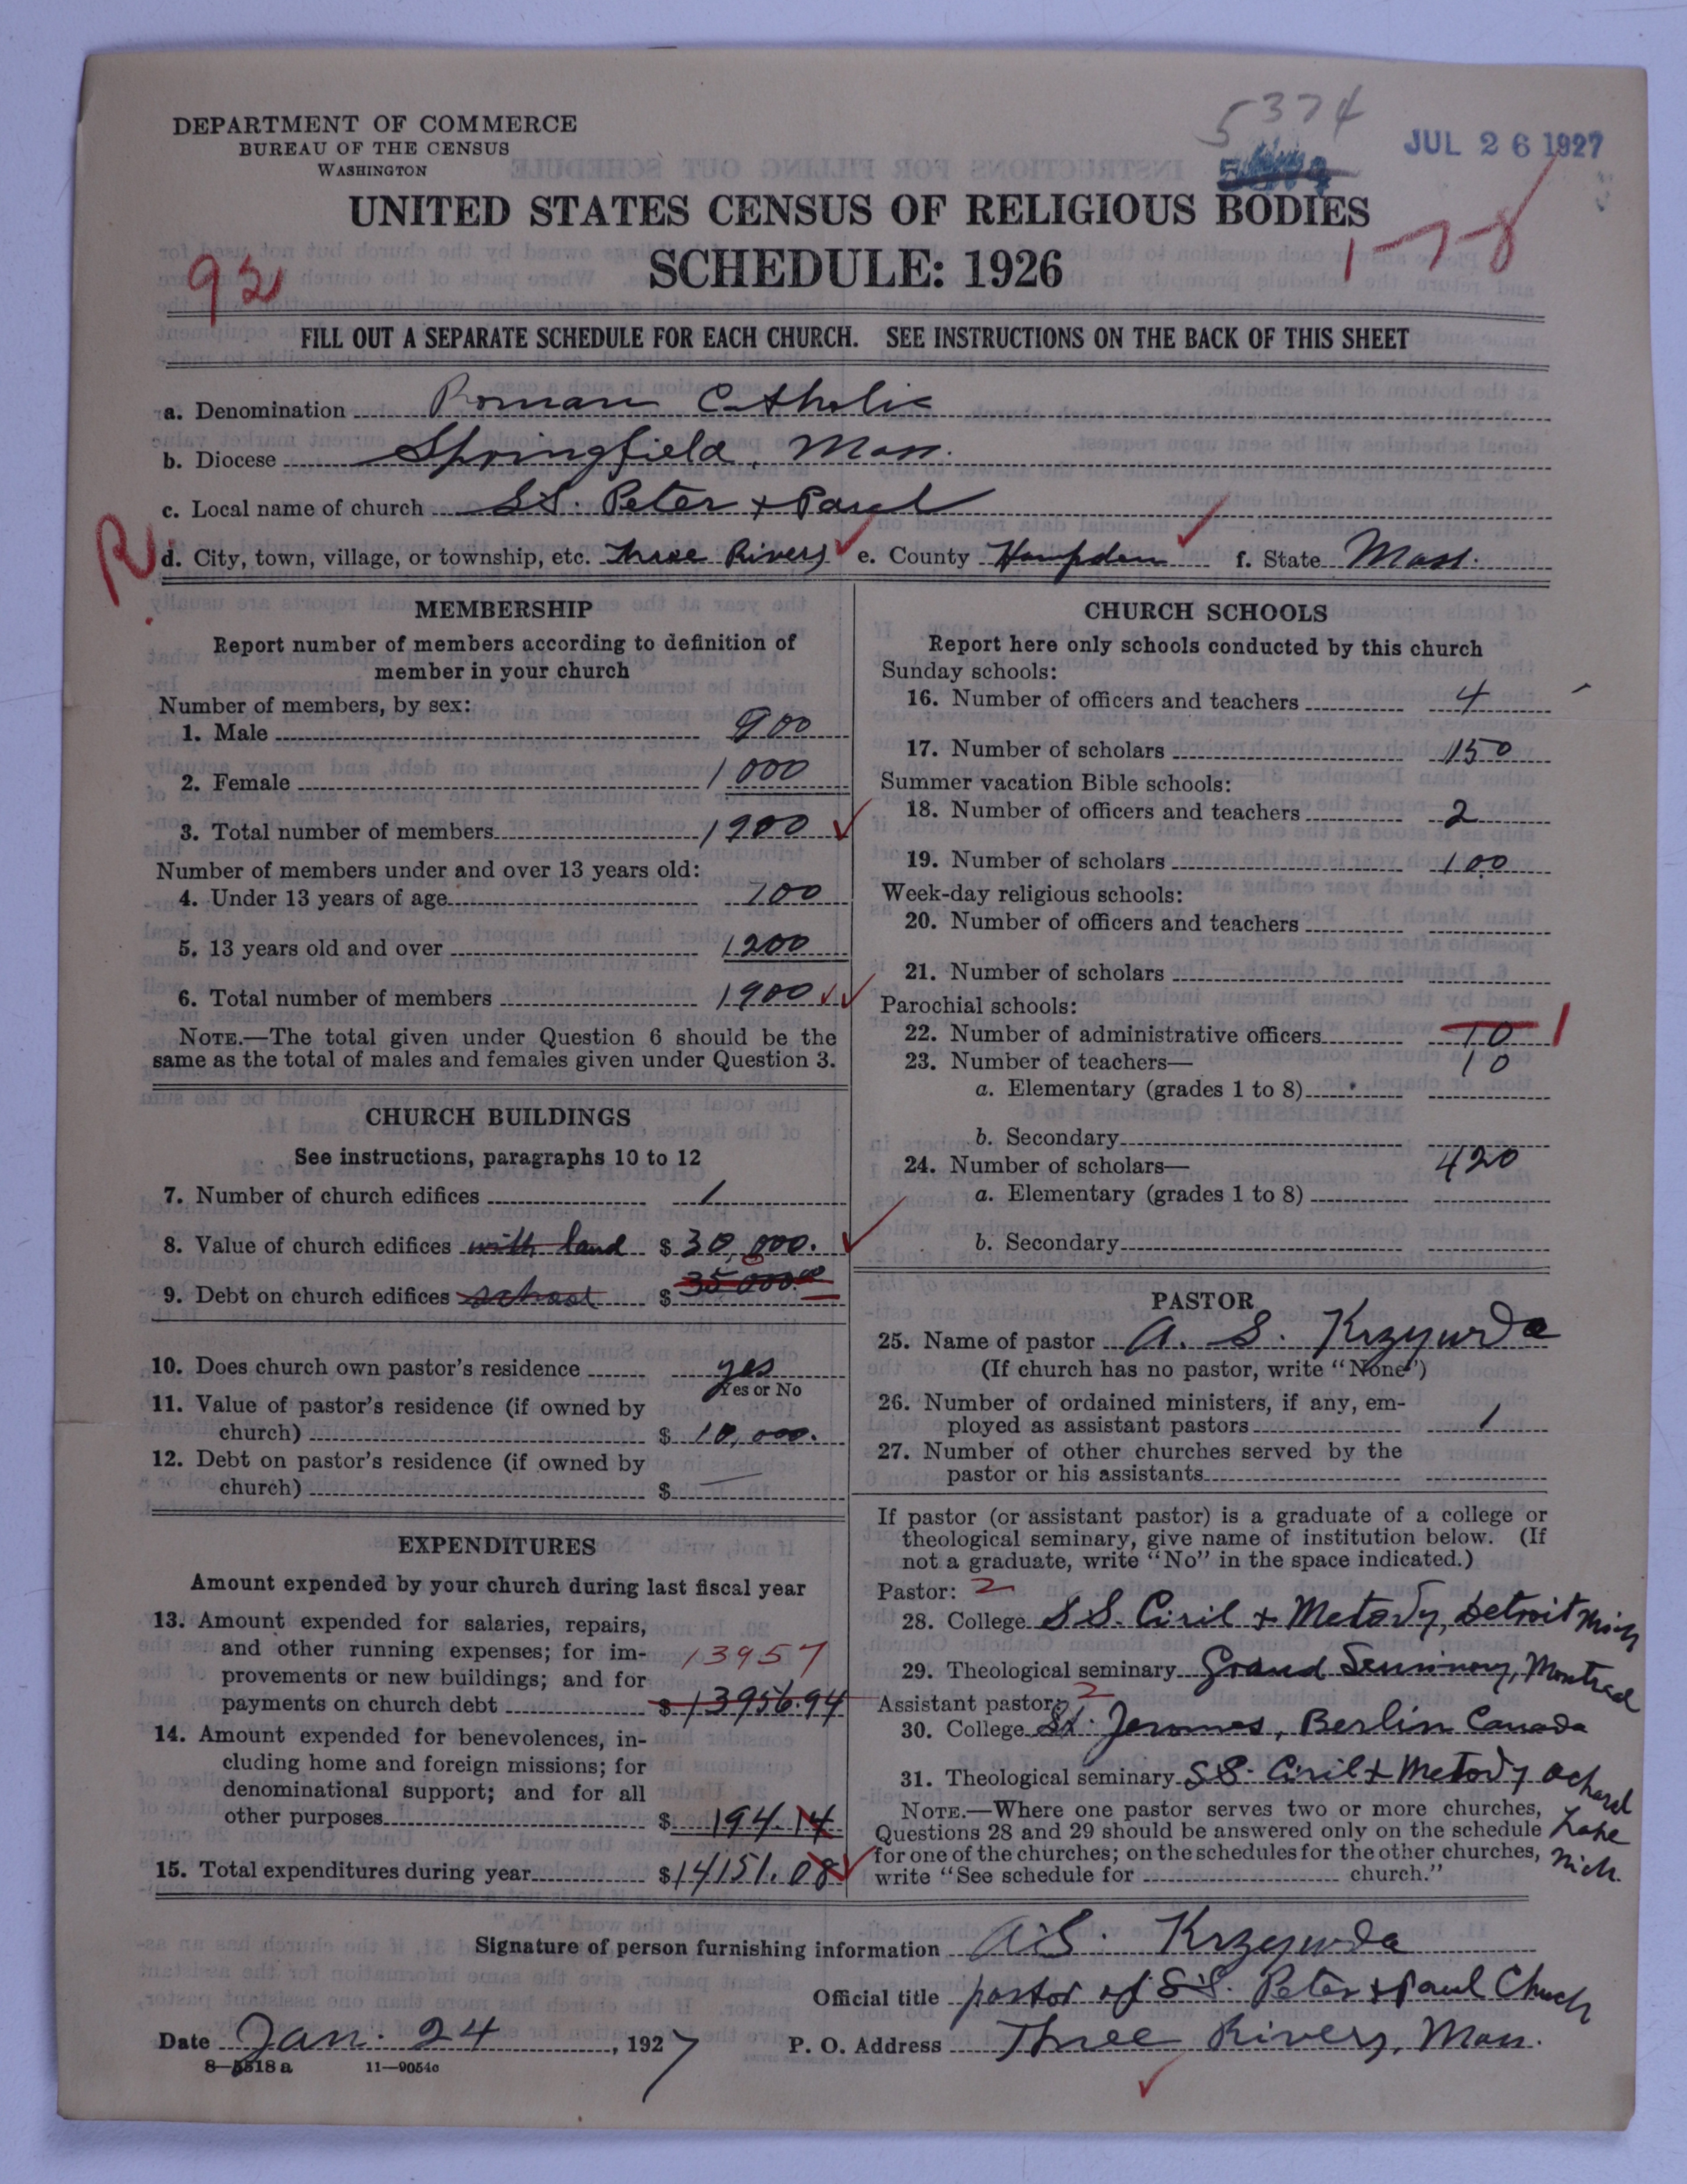 5374
DEPARTMENT OF COMMERCE
BUREAU OF THE CENSUS
WASHINGTON
JUL 26 1927
UNITED STATES CENSUS OF RELIGIOUS BODIES
SCHEDULE: 1926
93
1-7-8
FILL OUT A SEPARATE SCHEDULE FOR EACH CHURCH. SEE INSTRUCTIONS ON THE BACK OF THIS SHEET
a. Denomination Roman Catholic
b. Diocese Springfield, Mass.
c. Local name of church SS. Peter + Paul
R
d. City, town, village, or township, etc. Three Rivers e. County Hampden f. State Mass.
MEMBERSHIP
Report number of members according to definition of
member in your church
Number of members, by sex:
1. Male 900
2. Female 1000
3. Total number of members 1900
Number of members under and over 13 years old:
4. Under 13 years of age 700
5. 13 years old and over 1200
6. Total number of members 1900
NOTE.—The total given under Question 6 should be the
same as the total of males and females given under Question 3.
CHURCH BUILDINGS
See instructions, paragraphs 10 to 12
7. Number of church edifices 1
8. Value of church edifices with land $ 30,000.
9. Debt on church edifices school $ 35 000.00
10. Does church own pastor's residence yes
Yes or No
11. Value of pastor's residence (if owned by
church) $ 10,000.
12. Debt on pastor's residence (if owned by
church) $ —
EXPENDITURES
Amount expended by your church during last fiscal year
13. Amount expended for salaries, repairs,
and other running expenses; for im-
provements or new buildings; and for
13957
payments on church debt $ 13956.94
14. Amount expended for benevolences, in-
cluding home and foreign missions; for
denominational support; and for all
other purposes $ 194.14
15. Total expenditures during year $ 14151.08
CHURCH SCHOOLS
Report here only schools conducted by this church
Sunday schools:
16. Number of officers and teachers 4
17. Number of scholars 150
Summer vacation Bible schools:
18. Number of officers and teachers 2
19. Number of scholars 100
Week-day religious schools:
20. Number of officers and teachers
21. Number of scholars
Parochial schools:
22. Number of administrative officers 10 1
23. Number of teachers— 10
a. Elementary (grades 1 to 8)
b. Secondary
24. Number of scholars— 420
a. Elementary (grades 1 to 8)
b. Secondary
PASTOR
25. Name of pastor A. S. Krzywda
(If church has no pastor, write "None")
26. Number of ordained ministers, if any, em-
ployed as assistant pastors 1
27. Number of other churches served by the
pastor or his assistants
If pastor (or assistant pastor) is a graduate of a college or
theological seminary, give name of institution below. (If
not a graduate, write "No" in the space indicated.)
Pastor: 2
28. College SS. Ciril + Metody, Detroit Mich
29. Theological seminary Grand Seminary, Montreal
Assistant pastor: 2
30. College St. Jeromes, Berlin Canada
31. Theological seminary SS. Ciril + Metody Ochard
Lake
Mich.
NOTE.—Where one pastor serves two or more churches,
Questions 28 and 29 should be answered only on the schedule
for one of the churches; on the schedules for the other churches,
write "See schedule for church."
Signature of person furnishing information A. S. Krzywda
Official title pastor of SS. Peter + Paul Church
Date Jan. 24, 1927 P. O. Address Three Rivers, Mass.
8—5518 a 11—9054c